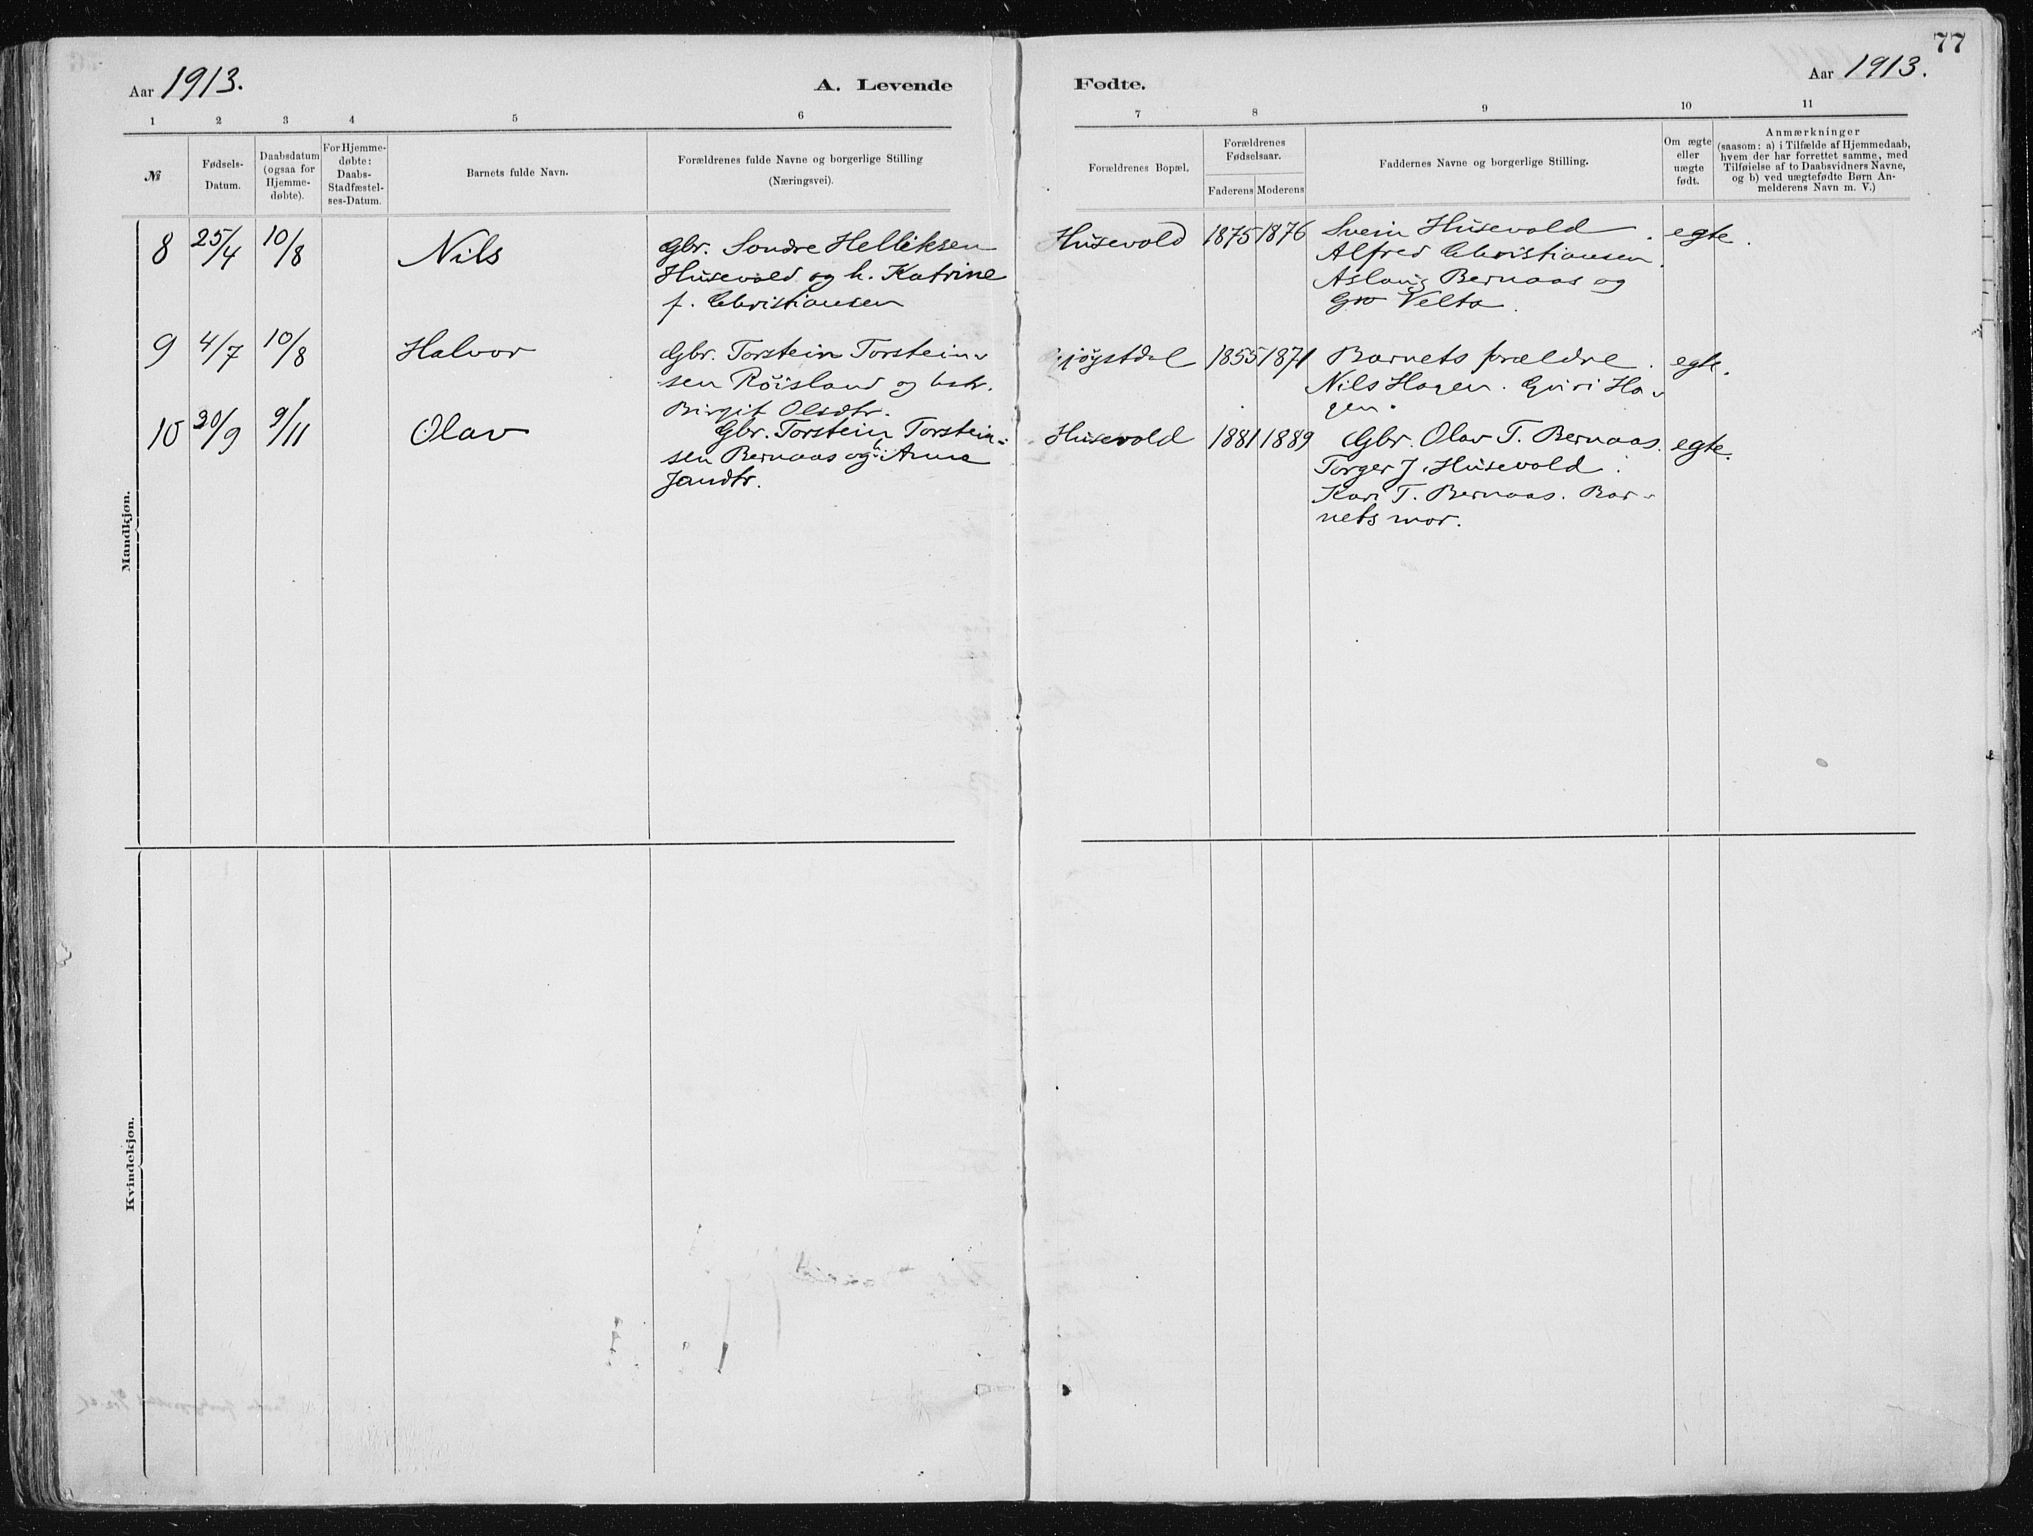 77
Aar 1913.
A. Levende
Fødte.
Aar 1913.
1 2 3 4 5 6 7 8 9 10 11
№
Fødsels-
Datum.
Daabsdatum
(ogsaa for
Hjemme-
døbte).
For Hjemme-
døbte:
Daabs-
Stadfæstel-
ses-Datum.
Barnets fulde Navn.
Forældrenes fulde Navne og borgerlige Stilling
(Næringsvei).
Forældrenes Bopæl.
Forældrenes
Fødselsaar.
Faderens Moderens
Faddernes Navne og borgerlige Stilling.
Om ægte
eller
uægte
født.
Anmærkninger
(saasom: a) i Tilfælde af Hjemmedaab,
hvem der har forrettet samme, med
Tilføielse af to Daabsvidners Navne,
og b) ved uægtefødte Børn An-
melderens Navn m. V.)
Mandkjøn.
8 25/4 10/8 Nils
Gbr. Sondre Helliksen
Husevold og h. Katrine
f. Christiansen
Husevold 1875 1876
Svein Husevold.
Alfred Christiansen.
Aslaug Bernaas og
Gro Velta.
egte.
9 4/7 10/8 Halvor
Gbr. Torstein Torstein-
sen Røisland og hstr.
Birgit Olsdtr.
jøgstdal 1855 1871
Barnets forældre.
Nils Hagen. Guri Ha-
gen.
egte.
10 20/9 9/11 Olav
Gbr. Torstein Torstein-
sen Bernaas og h. Anne
Jansdtr.
Husevold 1881 1889
Gbr. Olav T. Bernaas.
Torger J. Husevold.
Kari T. Bernaas. Bar-
nets mor.
egte.
Kvindekjøn.